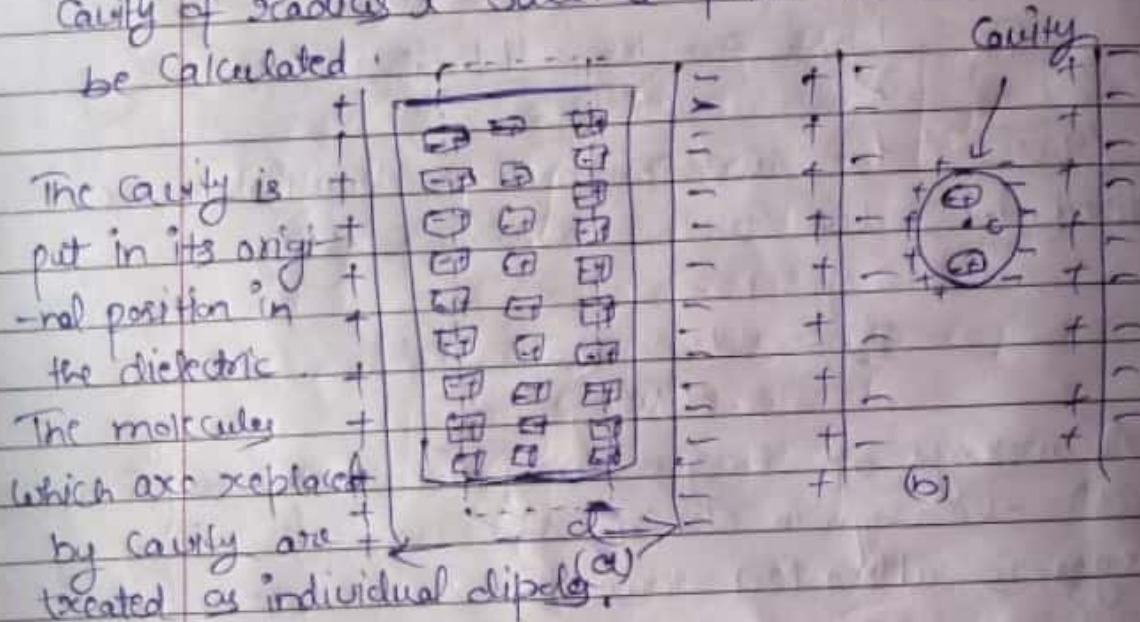 Cavity of radius
be Calculated.
The cavity is
put in its origi-
-nal position in
the dielectric
The molecules
which are replaced
by Cavity are
treated as individual dipole.
d
(a)
Cavity
c
(b)